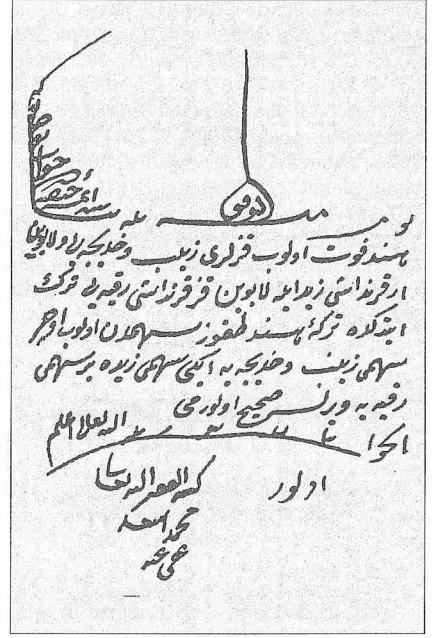 هند فوت اولوب قزلری زینب و خدیجه یی و لابوین
ار قرنداشی زید ایله لابوین قز قرنداشی رقیه یی ترك
ایتدكده تركۀ هند طقوز سهمدن اولوب اوچر
سهمی زینب و خدیجه یه ایكی سهمی زیده بر سهمی
رقیه یه ویرلسه صحیح اولورمی
الجواب الله تعالی اعلم
اولور
كتبه الفقیر الیه تعالی
محمد اسعد
عفی عنه